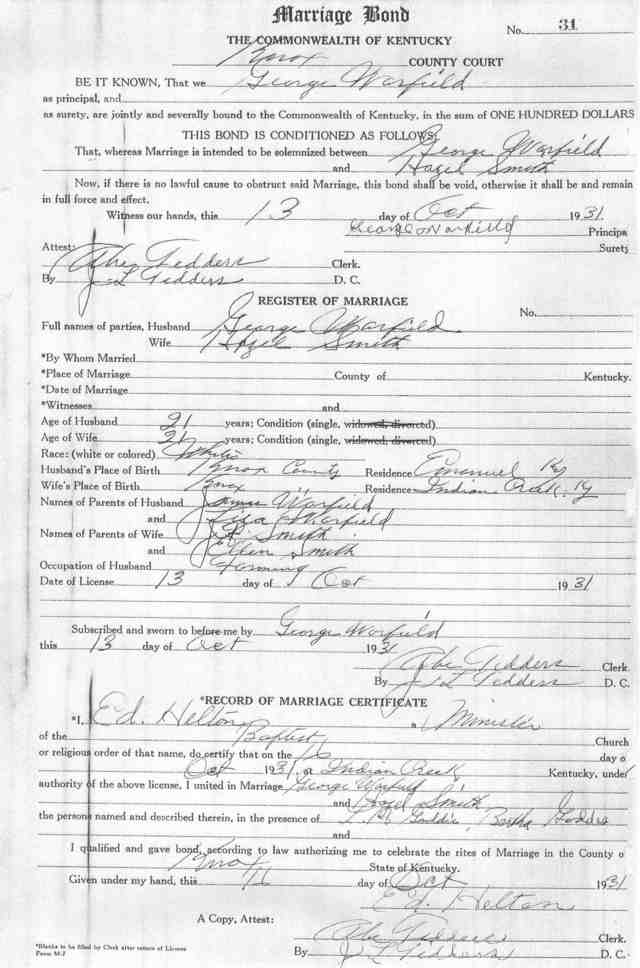 Marriage Bond
No. 31
THE COMMONWEALTH OF KENTUCKY
Knox COUNTY COURT
BE IT KNOWN, That we George Warfield
as principal, and
as surety, are jointly and severally bound to the Commonwealth of Kentucky, in the sum of ONE HUNDRED DOLLARS
THIS BOND IS CONDITIONED AS FOLLOWS:
That, whereas Marriage is intended to be solemnized between George Warfield
and Hazel Smith
Now, if there is no lawful cause to obstruct said Marriage, this bond shall be void, otherwise it shall be and remain
in full force and effect.
Witness our hands, this 13 day of Oct 1931.
George Warfield Principa
Surety
Attest:
Abe Tedders Clerk.
By J L Tedders D. C.
REGISTER OF MARRIAGE
No.
Full names of parties, Husband George Warfield
Wife Hazel Smith
*By Whom Married
*Place of Marriage County of Kentucky.
*Date of Marriage
*Witnesses and
Age of Husband 21 years; Condition (single, widowed, divorced)
Age of Wife 21 years; Condition (single, widowed, divorced)
Race: (white or colored) White
Husband's Place of Birth Knox County Residence Emanuel Ky
Wife's Place of Birth Knox Residence Indian Creek, Ky
Names of Parents of Husband James Warfield
and Warfield
Names of Parents of Wife Smith
and Ellen Smith
Occupation of Husband Farming
Date of License 13 day of Oct 1931
Subscribed and sworn to before me by George Warfield
this 13 day of Oct 1931
Abe Tedders Clerk
By J L Tedders D. C.
*RECORD OF MARRIAGE CERTIFICATE
*I, Ed. Helton a Minister
of the Baptist Church
or religious order of that name, do certify that on the 16 day o
Oct 1931, at Indian Creek Kentucky, under
authority of the above license, I united in Marriage George Warfield
and Hazel Smith
the persons named and described therein, in the presence of
and
I qualified and gave bond, according to law authorizing me to celebrate the rites of Marriage in the County o
Knox State of Kentucky.
Given under my hand, this 16 day of Oct 1931
Ed. Helton
A Copy, Attest:
Abe Tedders Clerk.
By J L Tedders D. C.
*Blanks to be filled by Clerk after return of License
Form M-2